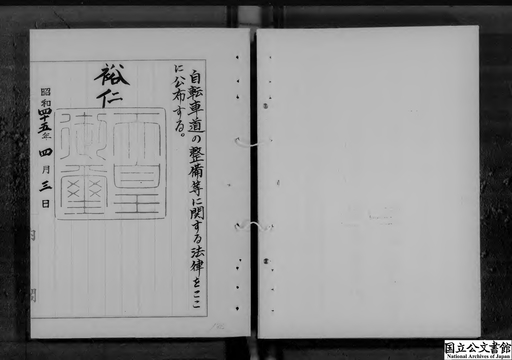 自転車道の整備等に関する法律をここ
に公布する。
裕仁
天皇御璽
昭和四十五年四月三日
内閣
国立公文書館
National Archives of Japan